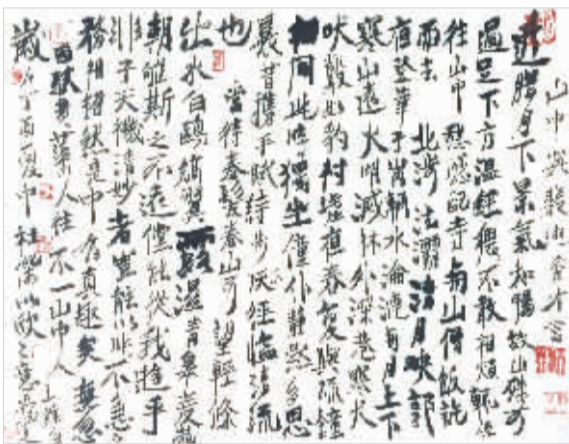 山中與裴秀才書
近臘月下景氣和暢故山殊可
過足下方溫經猥不敢相煩輒便
往山中憩感配寺與山僧飯訖
而去 北涉玄灞清月映郭
夜登華子岡輞水淪漣與月上下
寒山遠火明滅林外深巷寒犬
吠聲如豹村墟夜舂复與疏鐘
相间此時獨坐僮仆靜默多思
曩昔攜手賦詩步仄徑臨清流
也 當待春 春山可望輕鯈
出水白鷗矯翼露濕青皋麥隴
朝雊斯之不遠儻能從我遊乎
非子天機清妙者豈能以此不急之
務相招然是中有真趣矣無忽
因馱黃蘗人往不一山中人王維
歲次丁酉夏中